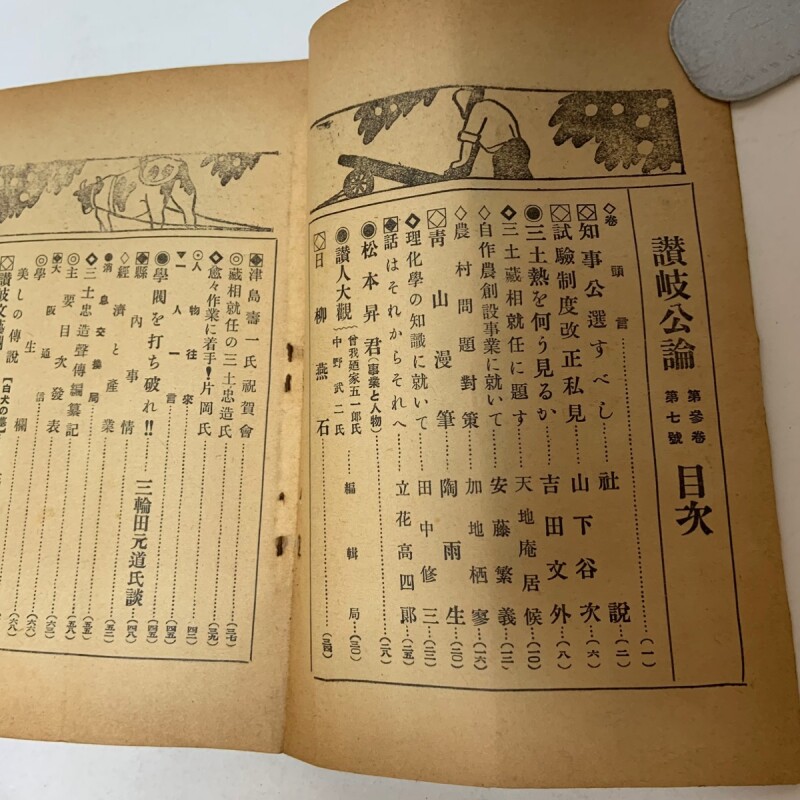 讃岐公論 第參卷 第七號 目次
◇卷頭言…(一)
◇知事公選すべし…社說…(二)
◇試驗制度改正私見…山下谷次…(六)
◉三土熱を何う見るか…吉田文外…(八)
◆三土藏相就任に題す…天地庵居候…(一〇)
◇自作農創設事業に就いて…安藤繁義…(一二)
◇農村問題對策…加地栖寥…(一六)
◇靑山漫筆…陶雨生…(二〇)
◆理化學の知識に就いて…田中修三…(二三)
◆話はそれからそれへ…立花高四郎…(二五)
◉松本昇君(事業と人物)…(二八)
◉讃人大觀 曾我廼家五一郎氏 中野武二氏…編輯局…(三〇)
◇日柳燕石…(三四)
◆津島壽一氏祝賀會…(三七)
◎藏相就任の三土忠造氏…(三九)
◆愈々作業に着手!片岡氏
⊙人物往來…(四二)
▼一人一言…(四五)
◉學閥を打ち破れ!!…三輪田元道氏談
◆縣內事情…(四八)
◇經濟と產業…(五二)
◉消息交換局
◆三土忠造聲傳編纂記…(五五)
◎主要目次發表…(五八)
◆大阪通信…(六三)
◎學生欄…(六六)
美しの傳說…(六八)
◇讃岐文藝欄【白犬の墓】